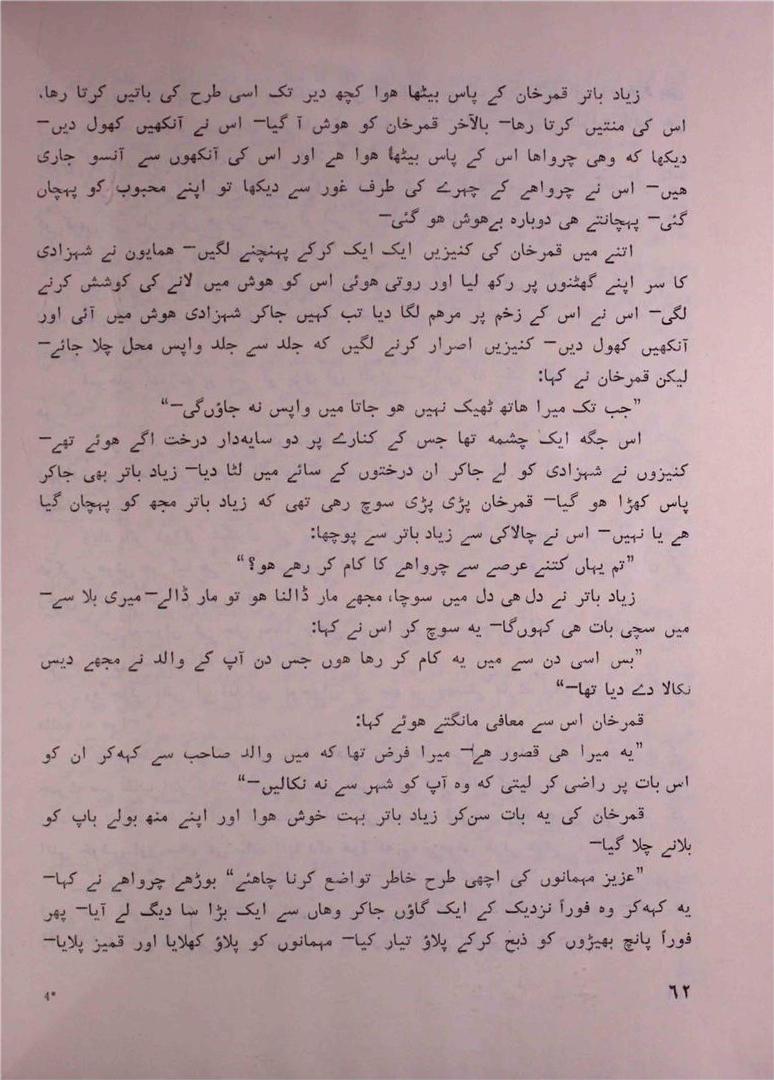 زیاد باتر قمرخان کے پاس بیٹھا ھوا کچھ دیر تک اسی طرح کی باتیں کرتا رھا،
اس کی منتیں کرتا رھا— بالآخر قمرخان کو ھوش آ گیا— اس نے آنکھیں کھول دیں—
دیکھا کہ وھی چرواھا اس کے پاس بیٹھا ھوا ھے اور اس کی آنکھوں سے آنسو جاری
ھیں— اس نے چرواھے کے چہرے کی طرف غور سے دیکھا تو اپنے محبوب کو پہچان
گئی— پہچانتے ھی دوبارہ بےھوش ھو گئی—
اتنے میں قمرخان کی کنیزیں ایک ایک کرکے پہنچنے لگیں— ھمایون نے شہزادی
کا سر اپنے گھٹنوں پر رکھ لیا اور روتی ھوئی اس کو ھوش میں لانے کی کوشش کرنے
لگی— اس نے اس کے زخم پر مرھم لگا دیا تب کہیں جاکر شہزادی ھوش میں آئی اور
آنکھیں کھول دیں— کنیزیں اصرار کرنے لگیں کہ جلد سے جلد واپس محل چلا جائے—
لیکن قمرخان نے کہا:
”جب تک میرا ھاتھ ٹھیک نہیں ھو جاتا میں واپس نہ جاؤں‌گی—“
اس جگہ ایک چشمہ تھا جس کے کنارے پر دو سایہ‌دار درخت اگے ھوئے تھے—
کنیزوں نے شہزادی کو لے جاکر ان درختوں کے سائے میں لٹا دیا— زیاد باتر بھی جاکر
پاس کھڑا ھو گیا— قمرخان پڑی پڑی سوچ رھی تھی کہ زیاد باتر مجھ کو پہچان گیا
ھے یا نہیں— اس نے چالاکی سے زیاد باتر سے پوچھا:
”تم یہاں کتنے عرصے سے چرواھے کا کام کر رھے ھو؟“
زیاد باتر نے دل ھی دل میں سوچا، مجھے مار ڈالنا ھو تو مار ڈالے— میری بلا سے—
میں سچی بات ھی کہوں‌گا— یہ سوچ کر اس نے کہا:
”بس اسی دن سے میں یہ کام کر رھا ھوں جس دن آپ کے والد نے مجھے دیس
نکالا دے دیا تھا—“
قمرخان اس سے معافی مانگتے ھوئے کہا:
”یہ میرا ھی قصور ھے— میرا فرض تھا کہ میں والد صاحب سے کہہ‌کر ان کو
اس بات پر راضی کر لیتی کہ وہ آپ کو شہر سے نہ نکالیں—“
قمرخان کی یہ بات سن‌کر زیاد باتر بہت خوش ھوا اور اپنے منھ بولے باپ کو
بلانے چلا گیا—
”عزیز مہمانوں کی اچھی طرح خاطر تواضع کرنا چاھئے“ بوڑھے چرواھے نے کہا—
یہ کہہ‌کر وہ فوراً نزدیک کے ایک گاؤں جاکر وھاں سے ایک بڑا سا دیگ لے آیا— پھر
فوراً پانچ بھیڑوں کو ذبح کرکے پلاؤ تیار کیا— مہمانوں کو پلاؤ کھلایا اور قمیز پلایا—
٦٢
4*